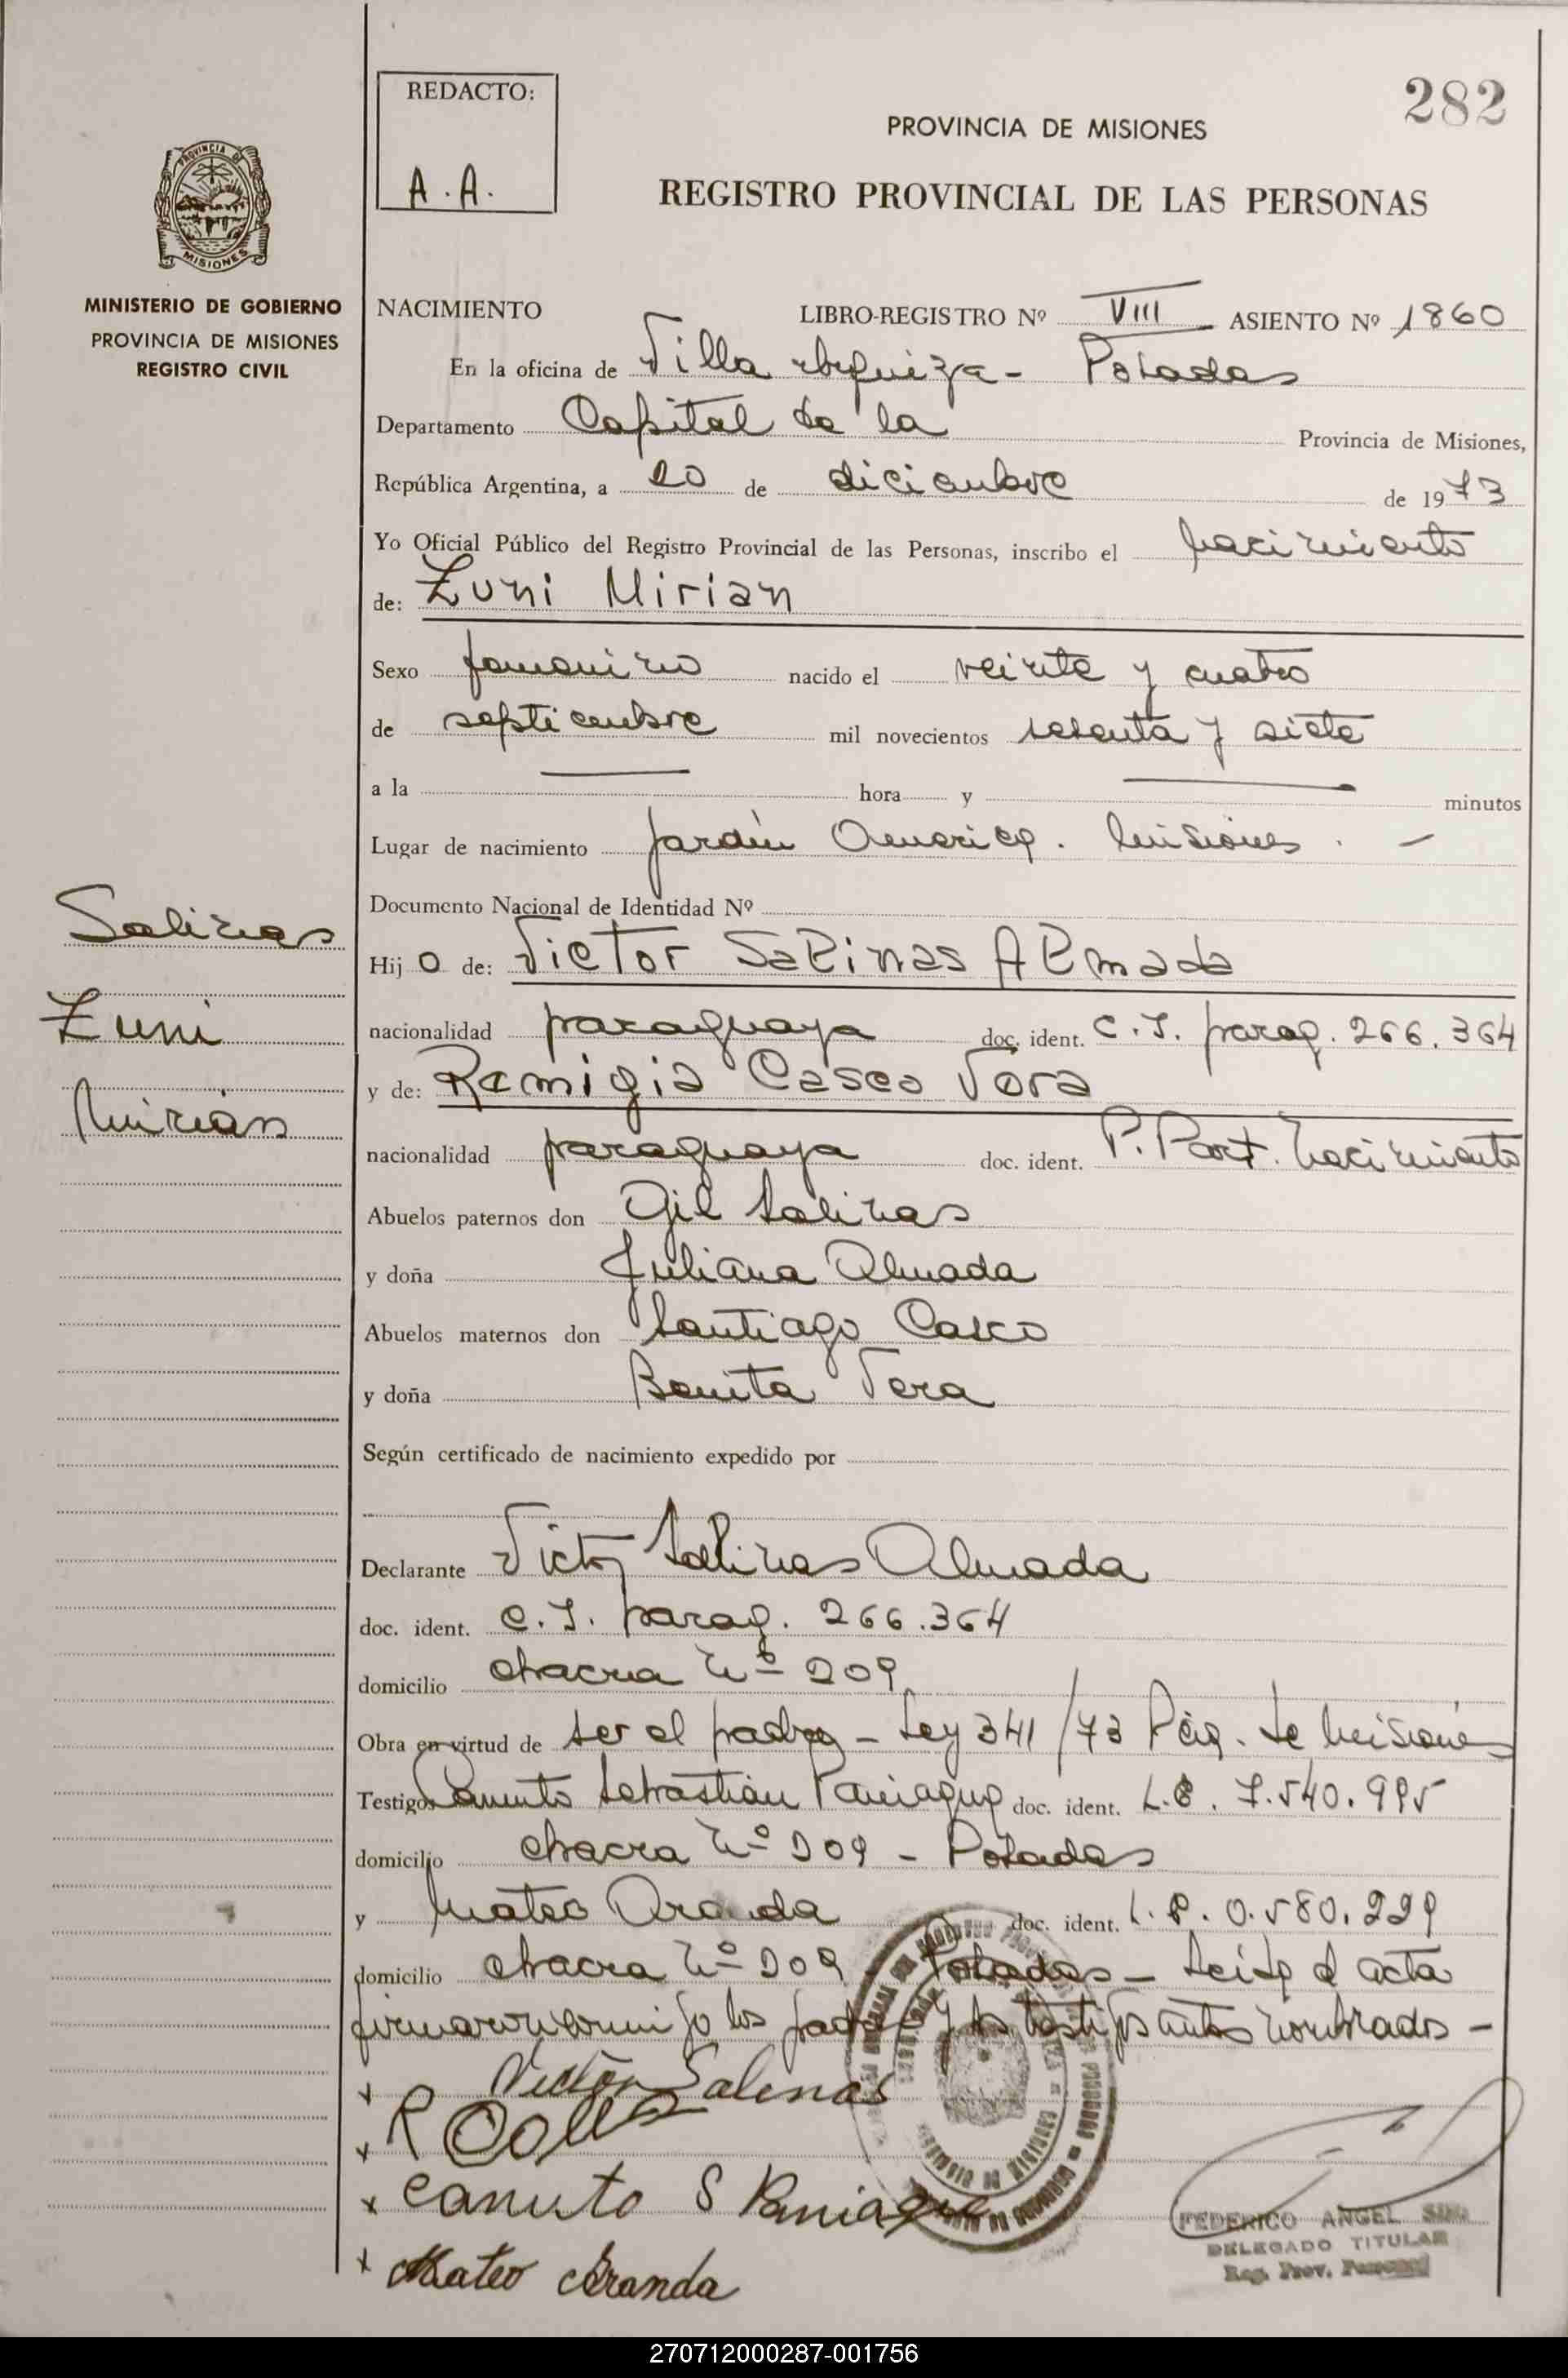 282
REDACTO:
A.A.
PROVINCIA DE MISIONES
REGISTRO PROVINCIAL DE LAS PERSONAS
PROVINCIA DE
MISIONES
MINISTERIO DE GOBIERNO
PROVINCIA DE MISIONES
REGISTRO CIVIL
NACIMIENTO LIBRO-REGISTRO Nº VIII ASIENTO Nº 1860
En la oficina de Villa Urquiza - Posadas
Departamento Capital de la Provincia de Misiones,
República Argentina, a 20 de diciembre de 1973
Yo Oficial Público del Registro Provincial de las Personas, inscribo el nacimiento
de: Zuni Mirian
Sexo femenino nacido el veinte y cuatro
de septiembre mil novecientos sesenta y siete
a la hora y minutos
Lugar de nacimiento Jardín America. Misiones. -
Documento Nacional de Identidad Nº
Salinas
Zuni
Mirian
Hijo de: Victor Salinas Almada
nacionalidad paraguaya doc. ident. C.I. parag. 266.364
y de: Remigia Casco Vera
nacionalidad paraguaya doc. ident. P. Part. Nacimiento
Abuelos paternos don Gil Salinas
y doña Juliana Almada
Abuelos maternos don Santiago Casco
y doña Benita Vera
Según certificado de nacimiento expedido por
Declarante Victor Salinas Almada
doc. ident. C.I. parag. 266.364
domicilio chacra Nº 209
Obra en virtud de ser el padre - Ley 341/73 de Misiones
Testigos Canuto Sebastián Paniagua doc. ident. L.E. 7.540.995
domicilio chacra Nº 209 - Posadas
y Mateo Aranda doc. ident. L.E. 0.580.229
domicilio chacra Nº 209 Posadas - Leida el acta
firmaron conmigo los padres y los testigos antes nombrados -
x Victor Salinas
x R Casco
x Canuto S Paniagua
x Mateo Aranda
FEDERICO ANGEL
DELEGADO TITULAR
Reg. Prov. Personas
270712000287-001756